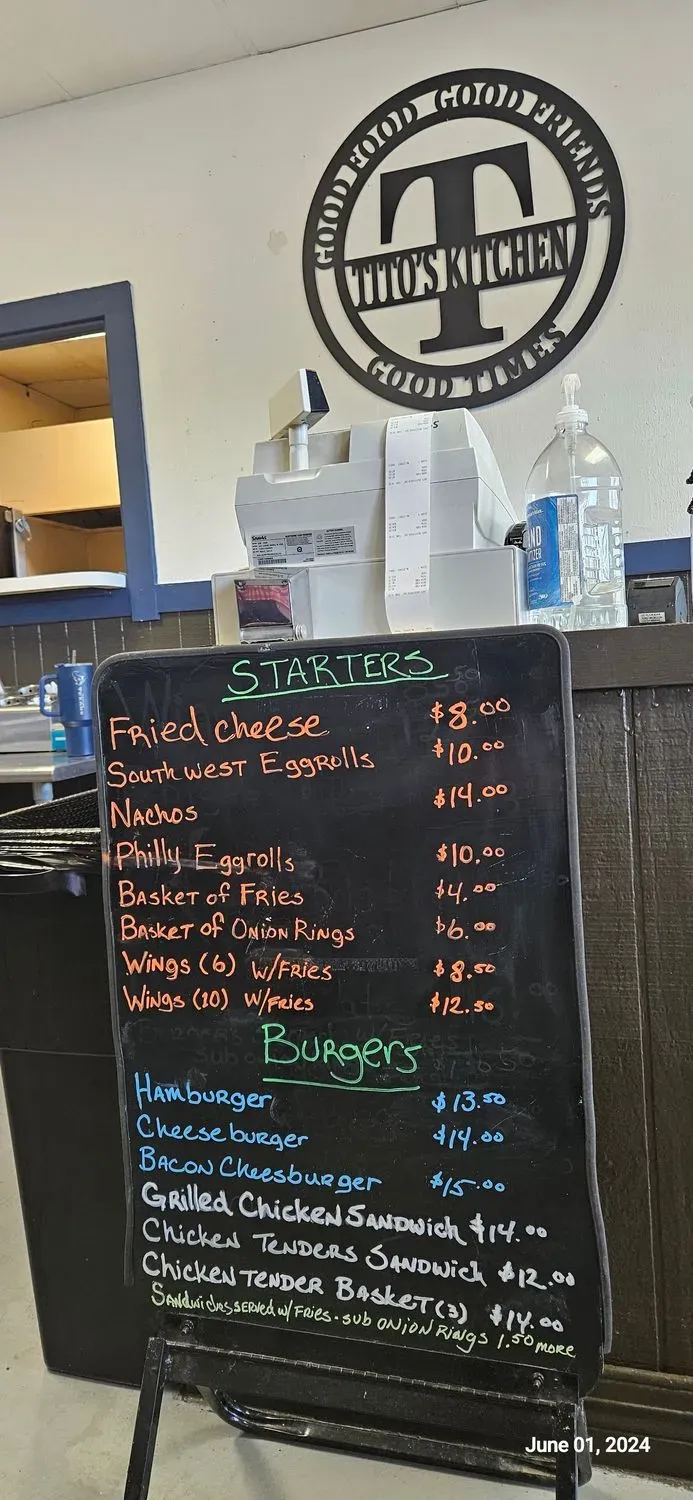 GOOD FOOD GOOD FRIENDS
T
TITO'S KITCHEN
GOOD TIMES
STARTERS
Fried cheese $8.00
Southwest Eggrolls $10.00
Nachos $14.00
Philly Eggrolls $10.00
Basket of Fries $4.00
Basket of Onion Rings $6.00
Wings (6) w/Fries $8.50
Wings (10) w/Fries $12.50
Burgers
Hamburger $13.50
Cheeseburger $14.00
Bacon Cheesburger $15.00
Grilled Chicken Sandwich $14.00
Chicken Tenders Sandwich $12.00
Chicken Tender Basket (3) $14.00
Sandwiches served w/ Fries - sub onion Rings 1.50 more
June 01, 2024